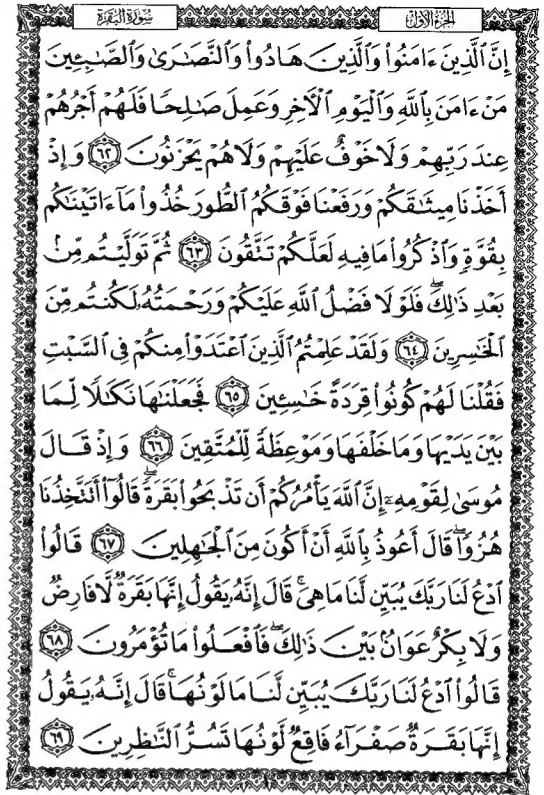 سُورَةُ البَقَرَةِ
الجُزءُ الأوَّلُ
إِنَّ ٱلَّذِينَ ءَامَنُواْ وَٱلَّذِينَ هَادُواْ وَٱلنَّصَٰرَىٰ وَٱلصَّٰبِـِٔينَ
مَنْ ءَامَنَ بِٱللَّهِ وَٱلْيَوْمِ ٱلْأَخِرِ وَعَمِلَ صَٰلِحًا فَلَهُمْ أَجْرُهُمْ
عِندَ رَبِّهِمْ وَلَا خَوْفٌ عَلَيْهِمْ وَلَا هُمْ يَحْزَنُونَ ٦٢ وَإِذْ
أَخَذْنَا مِيثَٰقَكُمْ وَرَفَعْنَا فَوْقَكُمُ ٱلطُّورَ خُذُواْ مَآ ءَاتَيْنَٰكُم
بِقُوَّةٍ وَٱذْكُرُواْ مَا فِيهِ لَعَلَّكُمْ تَتَّقُونَ ٦٣ ثُمَّ تَوَلَّيْتُم مِّنۢ
بَعْدِ ذَٰلِكَۖ فَلَوْلَا فَضْلُ ٱللَّهِ عَلَيْكُمْ وَرَحْمَتُهُۥ لَكُنتُم مِّنَ
ٱلْخَٰسِرِينَ ٦٤ وَلَقَدْ عَلِمْتُمُ ٱلَّذِينَ ٱعْتَدَوْاْ مِنكُمْ فِى ٱلسَّبْتِ
فَقُلْنَا لَهُمْ كُونُواْ قِرَدَةً خَٰسِـِٔينَ ٦٥ فَجَعَلْنَٰهَا نَكَٰلًا لِّمَا
بَيْنَ يَدَيْهَا وَمَا خَلْفَهَا وَمَوْعِظَةً لِّلْمُتَّقِينَ ٦٦ وَإِذْ قَالَ
مُوسَىٰ لِقَوْمِهِۦٓ إِنَّ ٱللَّهَ يَأْمُرُكُمْ أَن تَذْبَحُواْ بَقَرَةًۖ قَالُوٓاْ أَتَتَّخِذُنَا
هُزُوًاۖ قَالَ أَعُوذُ بِٱللَّهِ أَنْ أَكُونَ مِنَ ٱلْجَٰهِلِينَ ٦٧ قَالُواْ
ٱدْعُ لَنَا رَبَّكَ يُبَيِّن لَّنَا مَا هِىَۚ قَالَ إِنَّهُۥ يَقُولُ إِنَّهَا بَقَرَةٌ لَّا فَارِضٌ
وَلَا بِكْرٌ عَوَانٌۢ بَيْنَ ذَٰلِكَۖ فَٱفْعَلُواْ مَا تُؤْمَرُونَ ٦٨
قَالُواْ ٱدْعُ لَنَا رَبَّكَ يُبَيِّن لَّنَا مَا لَوْنُهَاۚ قَالَ إِنَّهُۥ يَقُولُ
إِنَّهَا بَقَرَةٌ صَفْرَآءُ فَاقِعٌ لَّوْنُهَا تَسُرُّ ٱلنَّٰظِرِينَ ٦٩